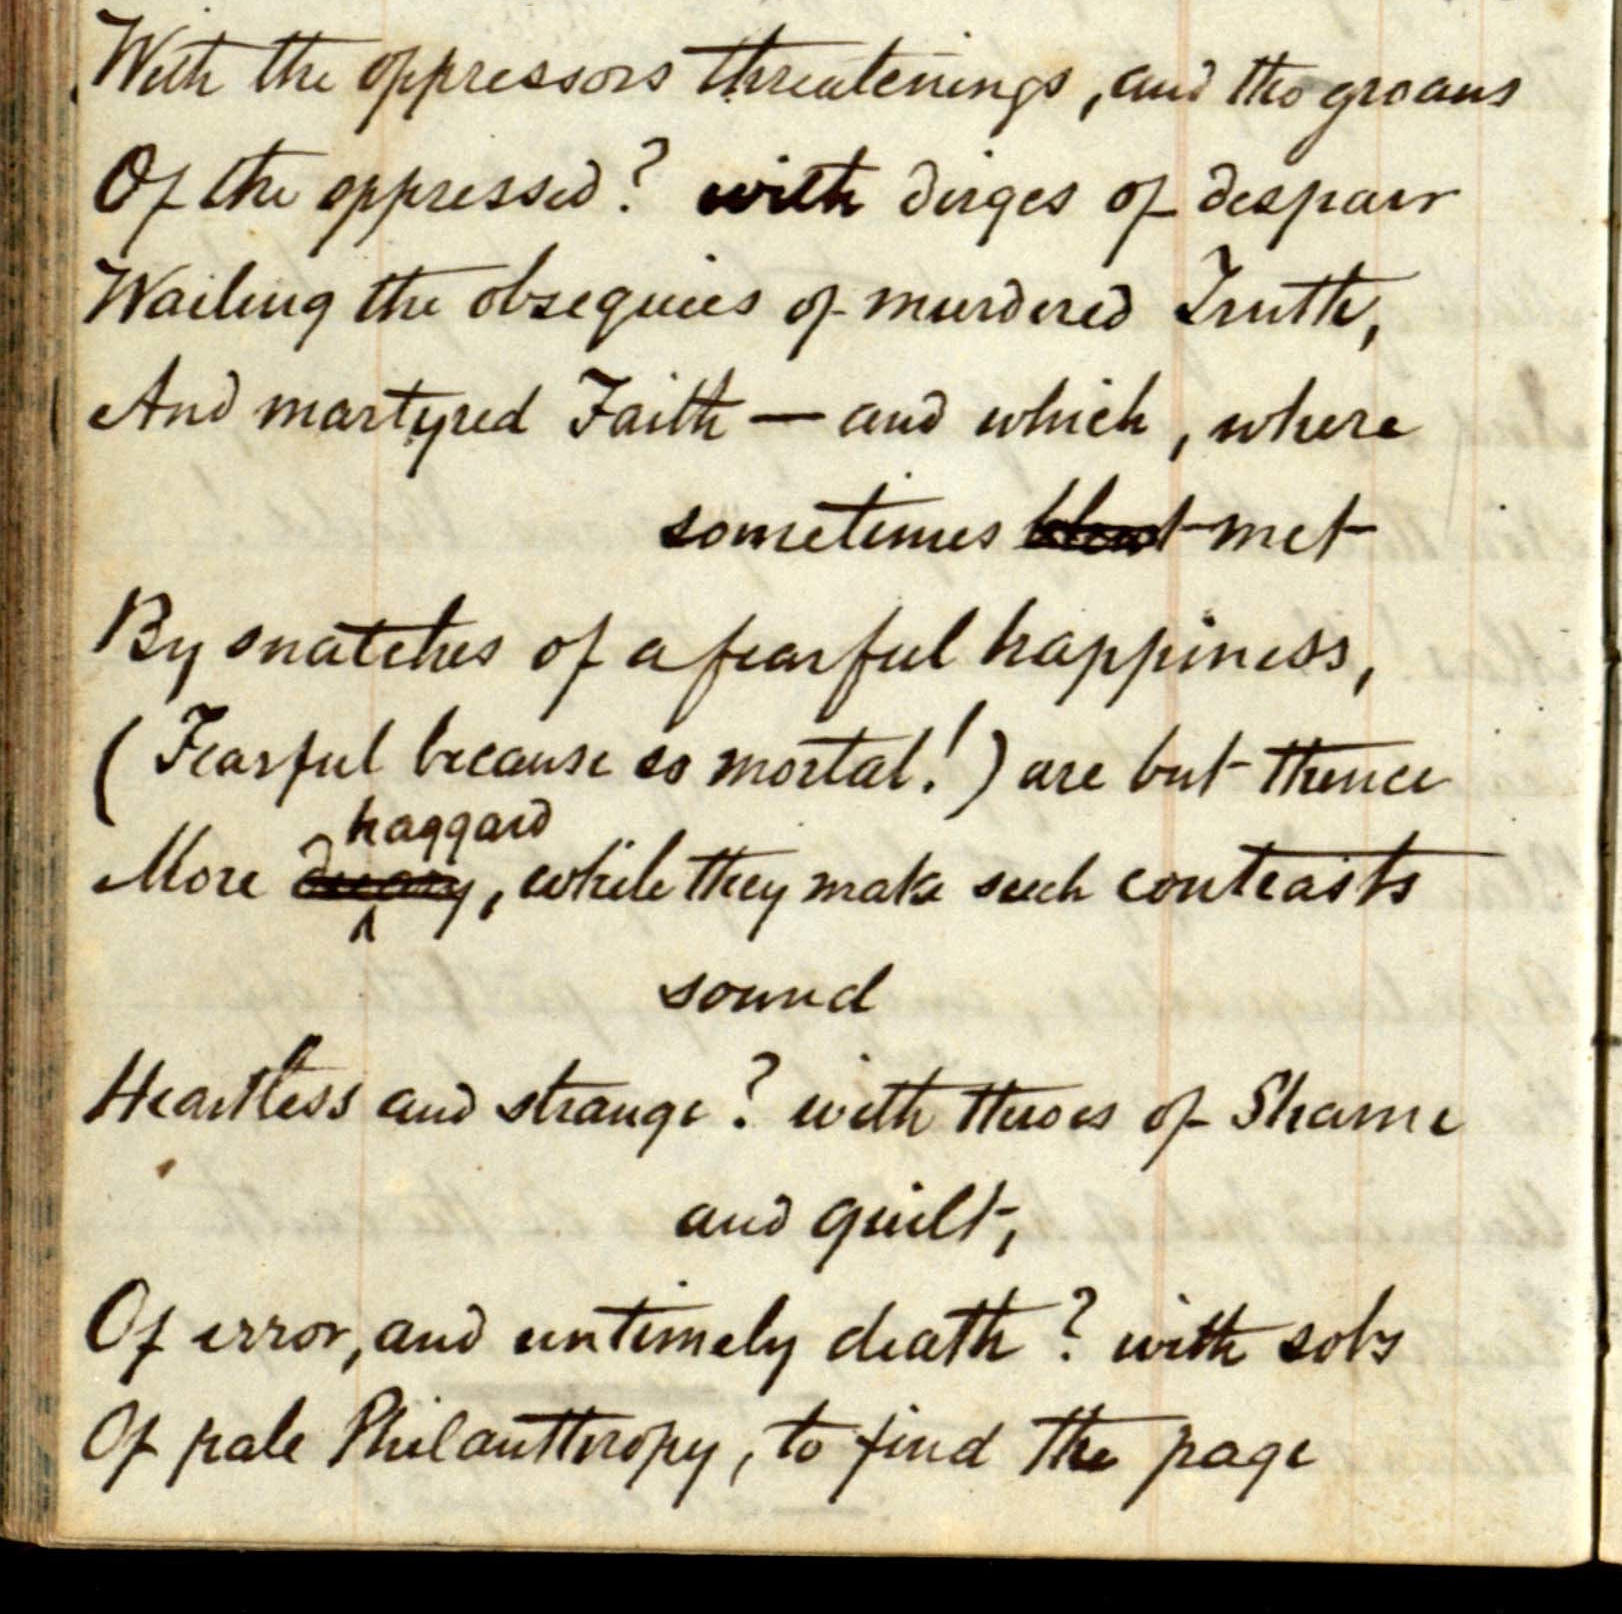 With the oppressors threatenings, and the groans
Of the oppressed? with dirges of despair
Wailing the obsequies of murdered Truth,
And martyred Faith — and which, where
sometimes met
By snatches of a fearful happiness,
(Fearful because so mortal!) are but thence
haggard
More dreary, while they make such contrasts
sound
Heartless and strange? with throes of Shame
and guilt,
Of error, and untimely death? with sobs
Of pale Philanthropy, to find the page